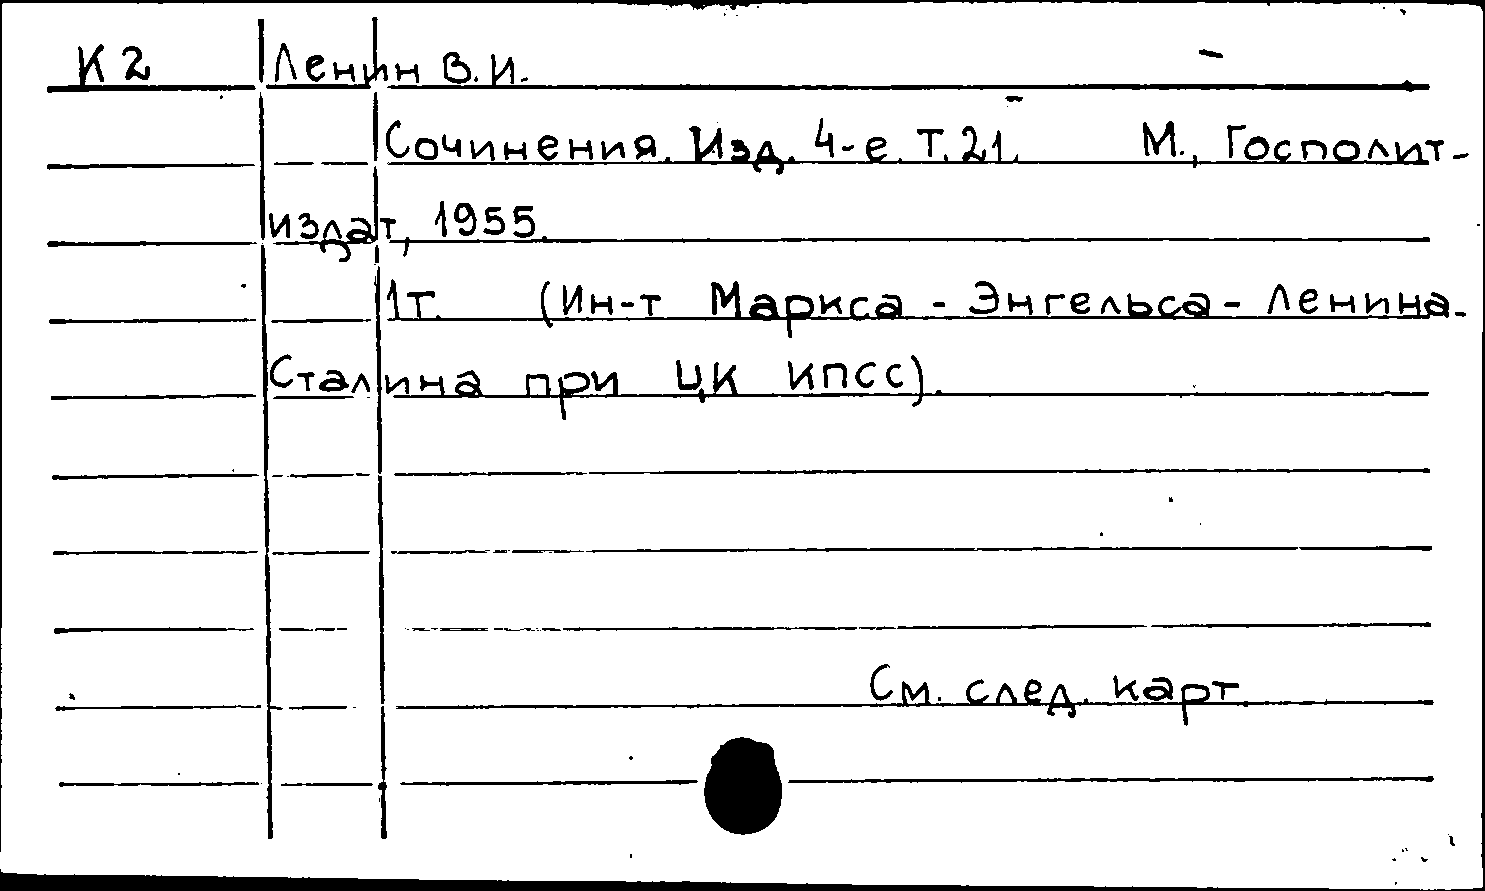 К2 Ленин В.И.
Сочинения. Изд. 4-е. Т.21. М., Госполит-
издат, 1955.
1т. (Ин-т Маркса - Энгельса - Ленина-
Сталина при ЦК КПСС).
См. след. карт.